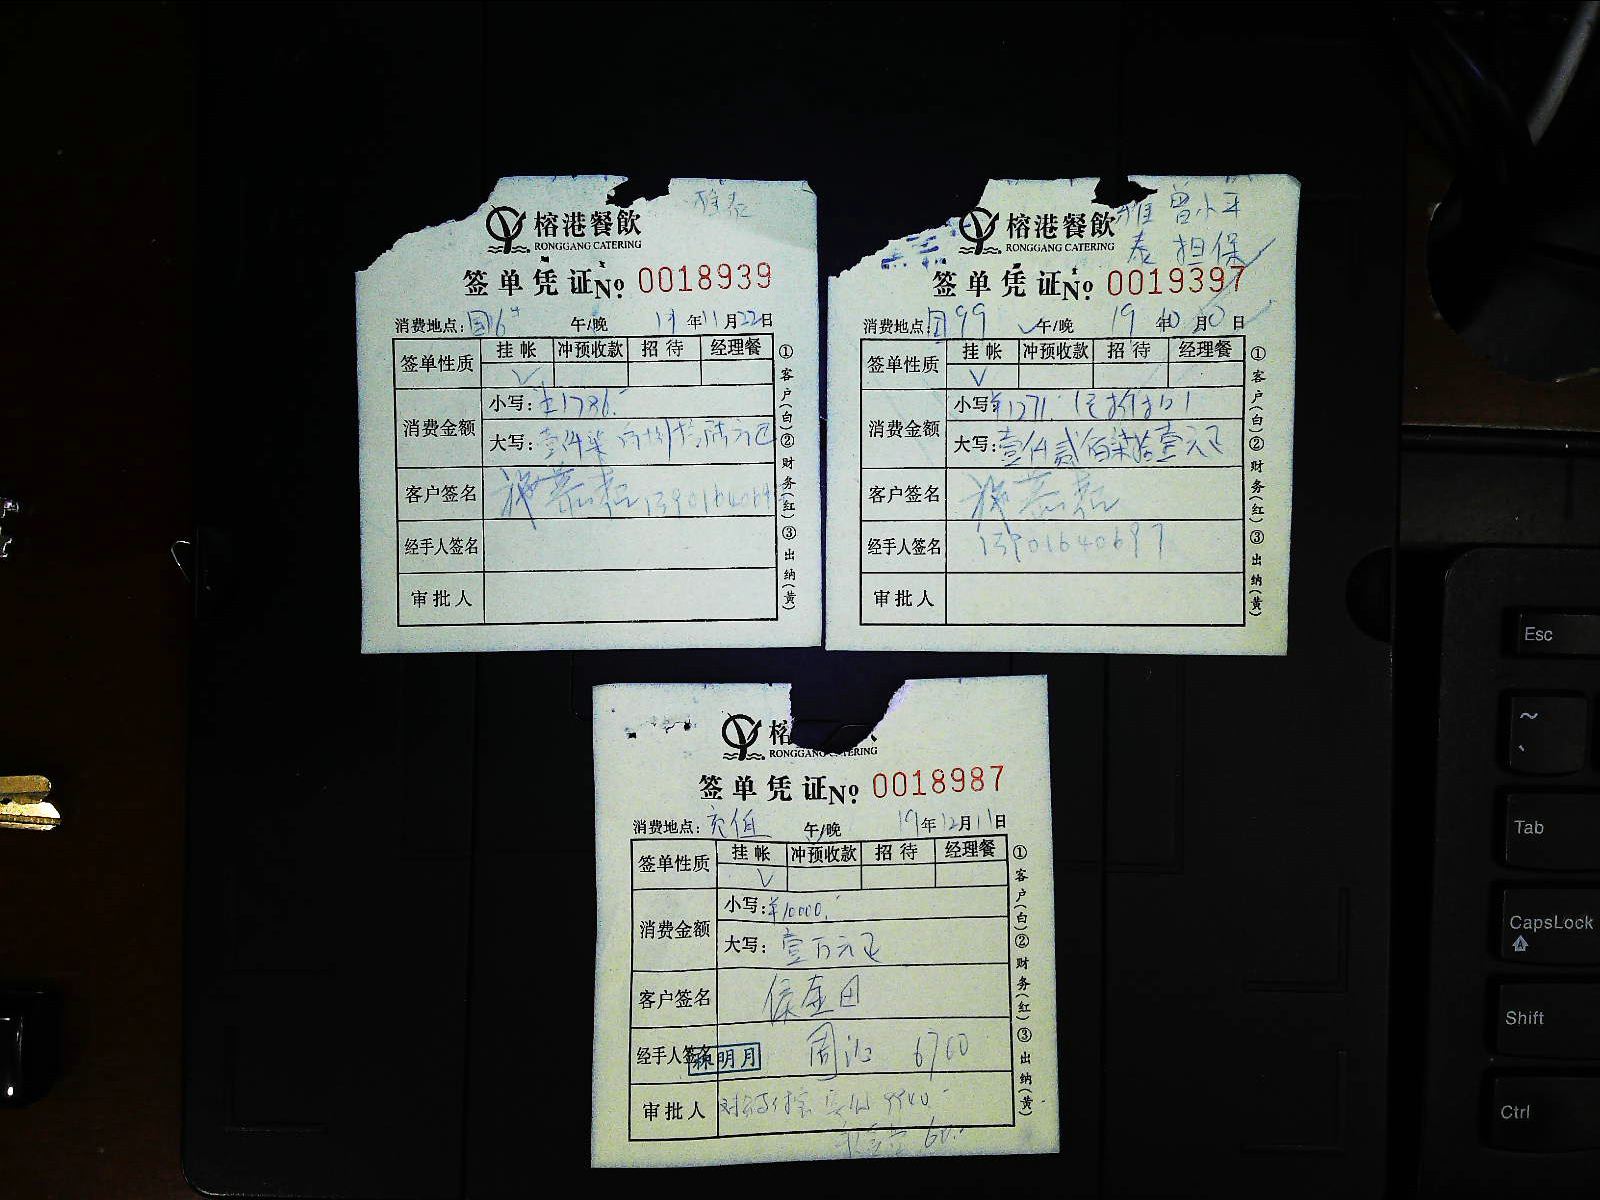 雅泰
榕港餐飲
RONGGANG CATERING
签单凭证 No. 0018939
消费地点: 午/晚 19年11月22日
签单性质 挂帐 冲预收款 招待 经理餐
√
消费金额 小写: ¥1786.-
大写: 壹仟柒佰捌拾陆元正
客户签名
经手人签名
审批人
①客户(白)②财务(红)③出纳(黄)
雅泰 曾小平
担保
榕港餐飲
RONGGANG CATERING
签单凭证 No. 0019397
消费地点: 99 √午/晚 19年10月 日
签单性质 挂帐 冲预收款 招待 经理餐
√
消费金额 小写: ¥1271.
大写: 壹仟贰佰柒拾壹元正
客户签名
经手人签名 13901640697
审批人
①客户(白)②财务(红)③出纳(黄)
榕
RONGGANG CATERING
签单凭证 No. 0018987
消费地点: 充值 午/晚 19年12月11日
签单性质 挂帐 冲预收款 招待 经理餐
√
消费金额 小写: ¥10000.-
大写: 壹万元正
客户签名
经手人签名 明月 周 6700
审批人
①客户(白)②财务(红)③出纳(黄)
Esc
~
Tab
CapsLock
Shift
Ctrl